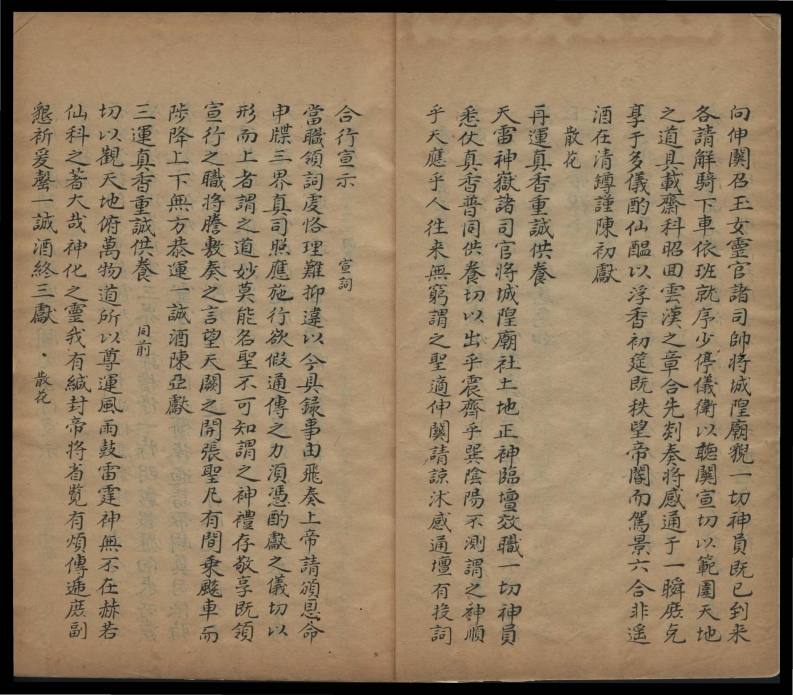 向伸關召玉女靈官諸司帥將城隍廟貌一切神員既已到來
各請解騎下車依班就序少停儀衛以聽關宣切以範圍天地
之道具載齋科昭回雲漢之章合先剡奏將感通于一瞬庶克
享于多儀酌仙醖以浮香初筵既秩望帝閽而駕景六合非遥
酒在清罇謹陳初獻
散花
再運真香重誠供養
天雷神嶽諸司官將城隍廟社土地正神臨壇效職一切神員
悉仗真香普同供養切以出乎震齊乎巽陰陽不測謂之神順
乎天應乎人往來無窮謂之聖適伸關請諒沐感通壇有投詞
合行宣示
宣詞
當職領詞虔恪理難抑違以今具錄事由飛奏上帝請頒恩命
申牒三界真司照應施行欲假通傳之力須憑酌獻之儀切以
形而上者謂之道妙莫能名聖不可知謂之神禮存敬享既領
宣行之職將謄敷奏之言望天闕之開張聖凡有間乘飈車而
陟降上下無方恭運一誠酒陳亞獻
三運真香重誠供養 同前
切以觀天地俯萬物道所以尊運風雨鼓雷霆神無不在赫若
仙科之著大哉神化之靈我有緘封帝將省覽有煩傳遞庶副
懇祈爰罄一誠酒終三獻 · 散花